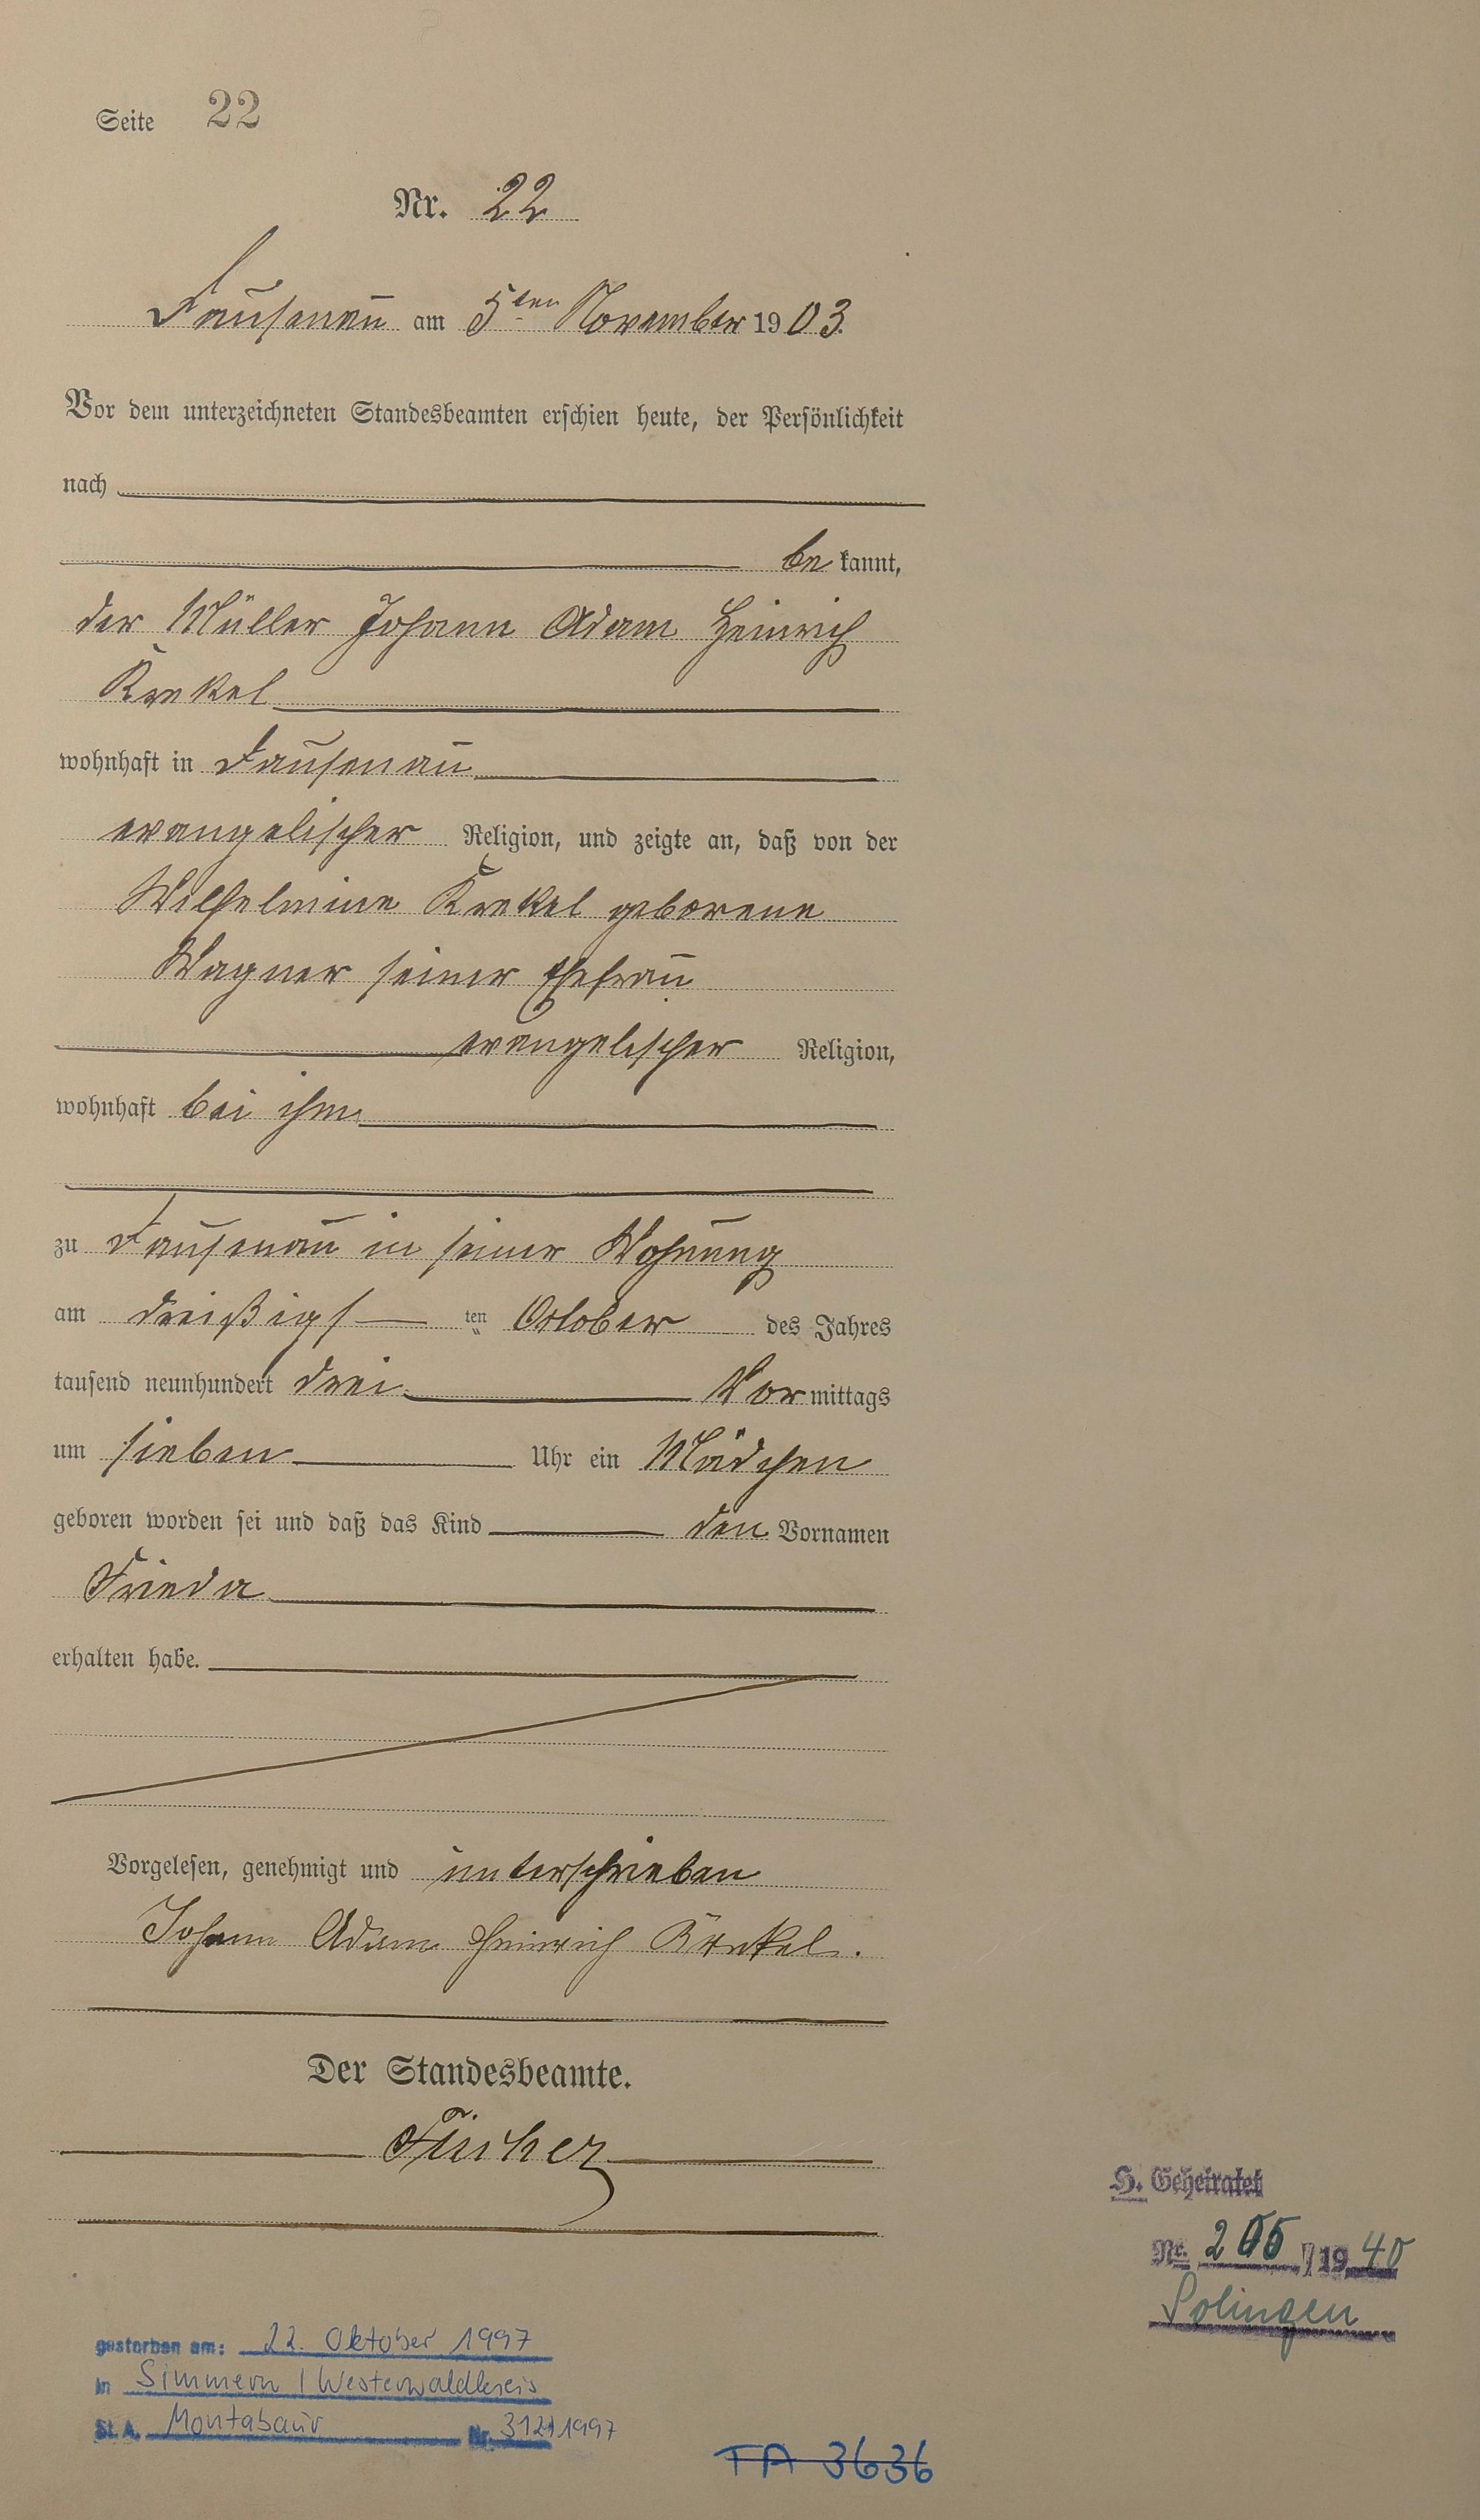 Seite 22
Nr. 22
Dausenau am 5ten November 1903.
Vor dem unterzeichneten Standesbeamten erschien heute, der Persönlichkeit
nach
be kannt,
der Müller Johann Adam Heinrich
Krekel
wohnhaft in Dausenau
evangelischer Religion, und zeigte an, daß von der
Wilhelmine Krekel geborene
Wagner seiner Ehefrau
evangelischer Religion,
wohnhaft bei ihm
zu Dausenau in seiner Wohnung
am dreißigs ten October des Jahres
tausend neunhundert drei Vor mittags
um sieben Uhr ein Mädchen
geboren worden sei und daß das Kind den Vornamen
Frieda
erhalten habe.
Vorgelesen, genehmigt und unterschrieben
Johann Adam Heinrich Krekel.
Der Standesbeamte.
H. Geheiratet
Nr. /1940
Solingen
gestorben am: 22. Oktober 1997
in Simmern / Westerwaldkreis
St. A. Montabaur Nr. 312/1997
TA 3636